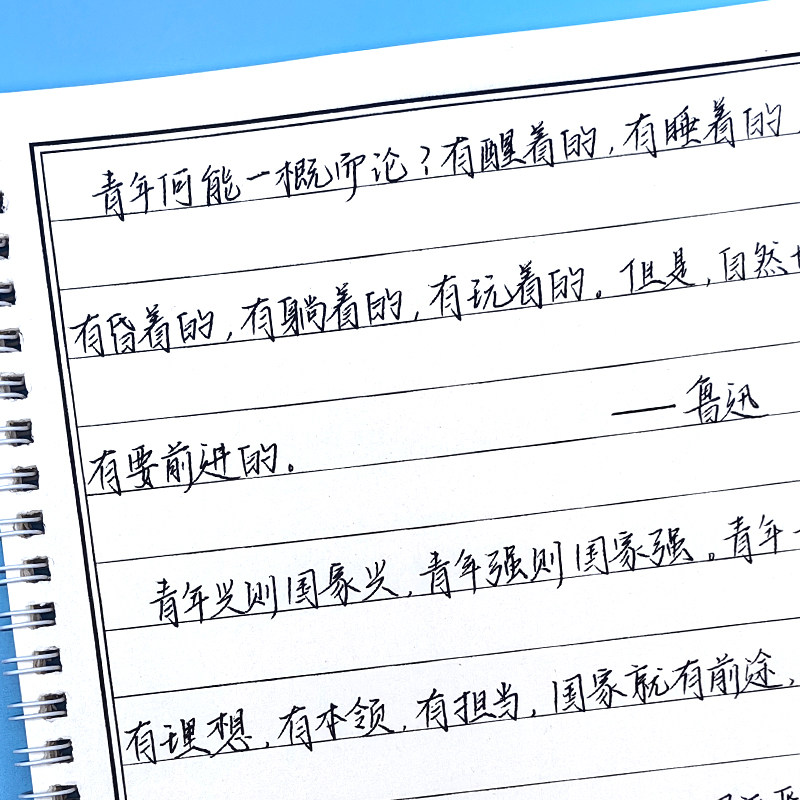 青年何能一概而论？有醒着的，有睡着的，
有昏着的，有躺着的，有玩着的。但是，自然
——鲁迅
有要前进的。
青年兴则国家兴，青年强则国家强。青年一
有理想，有本领，有担当，国家就有前途，